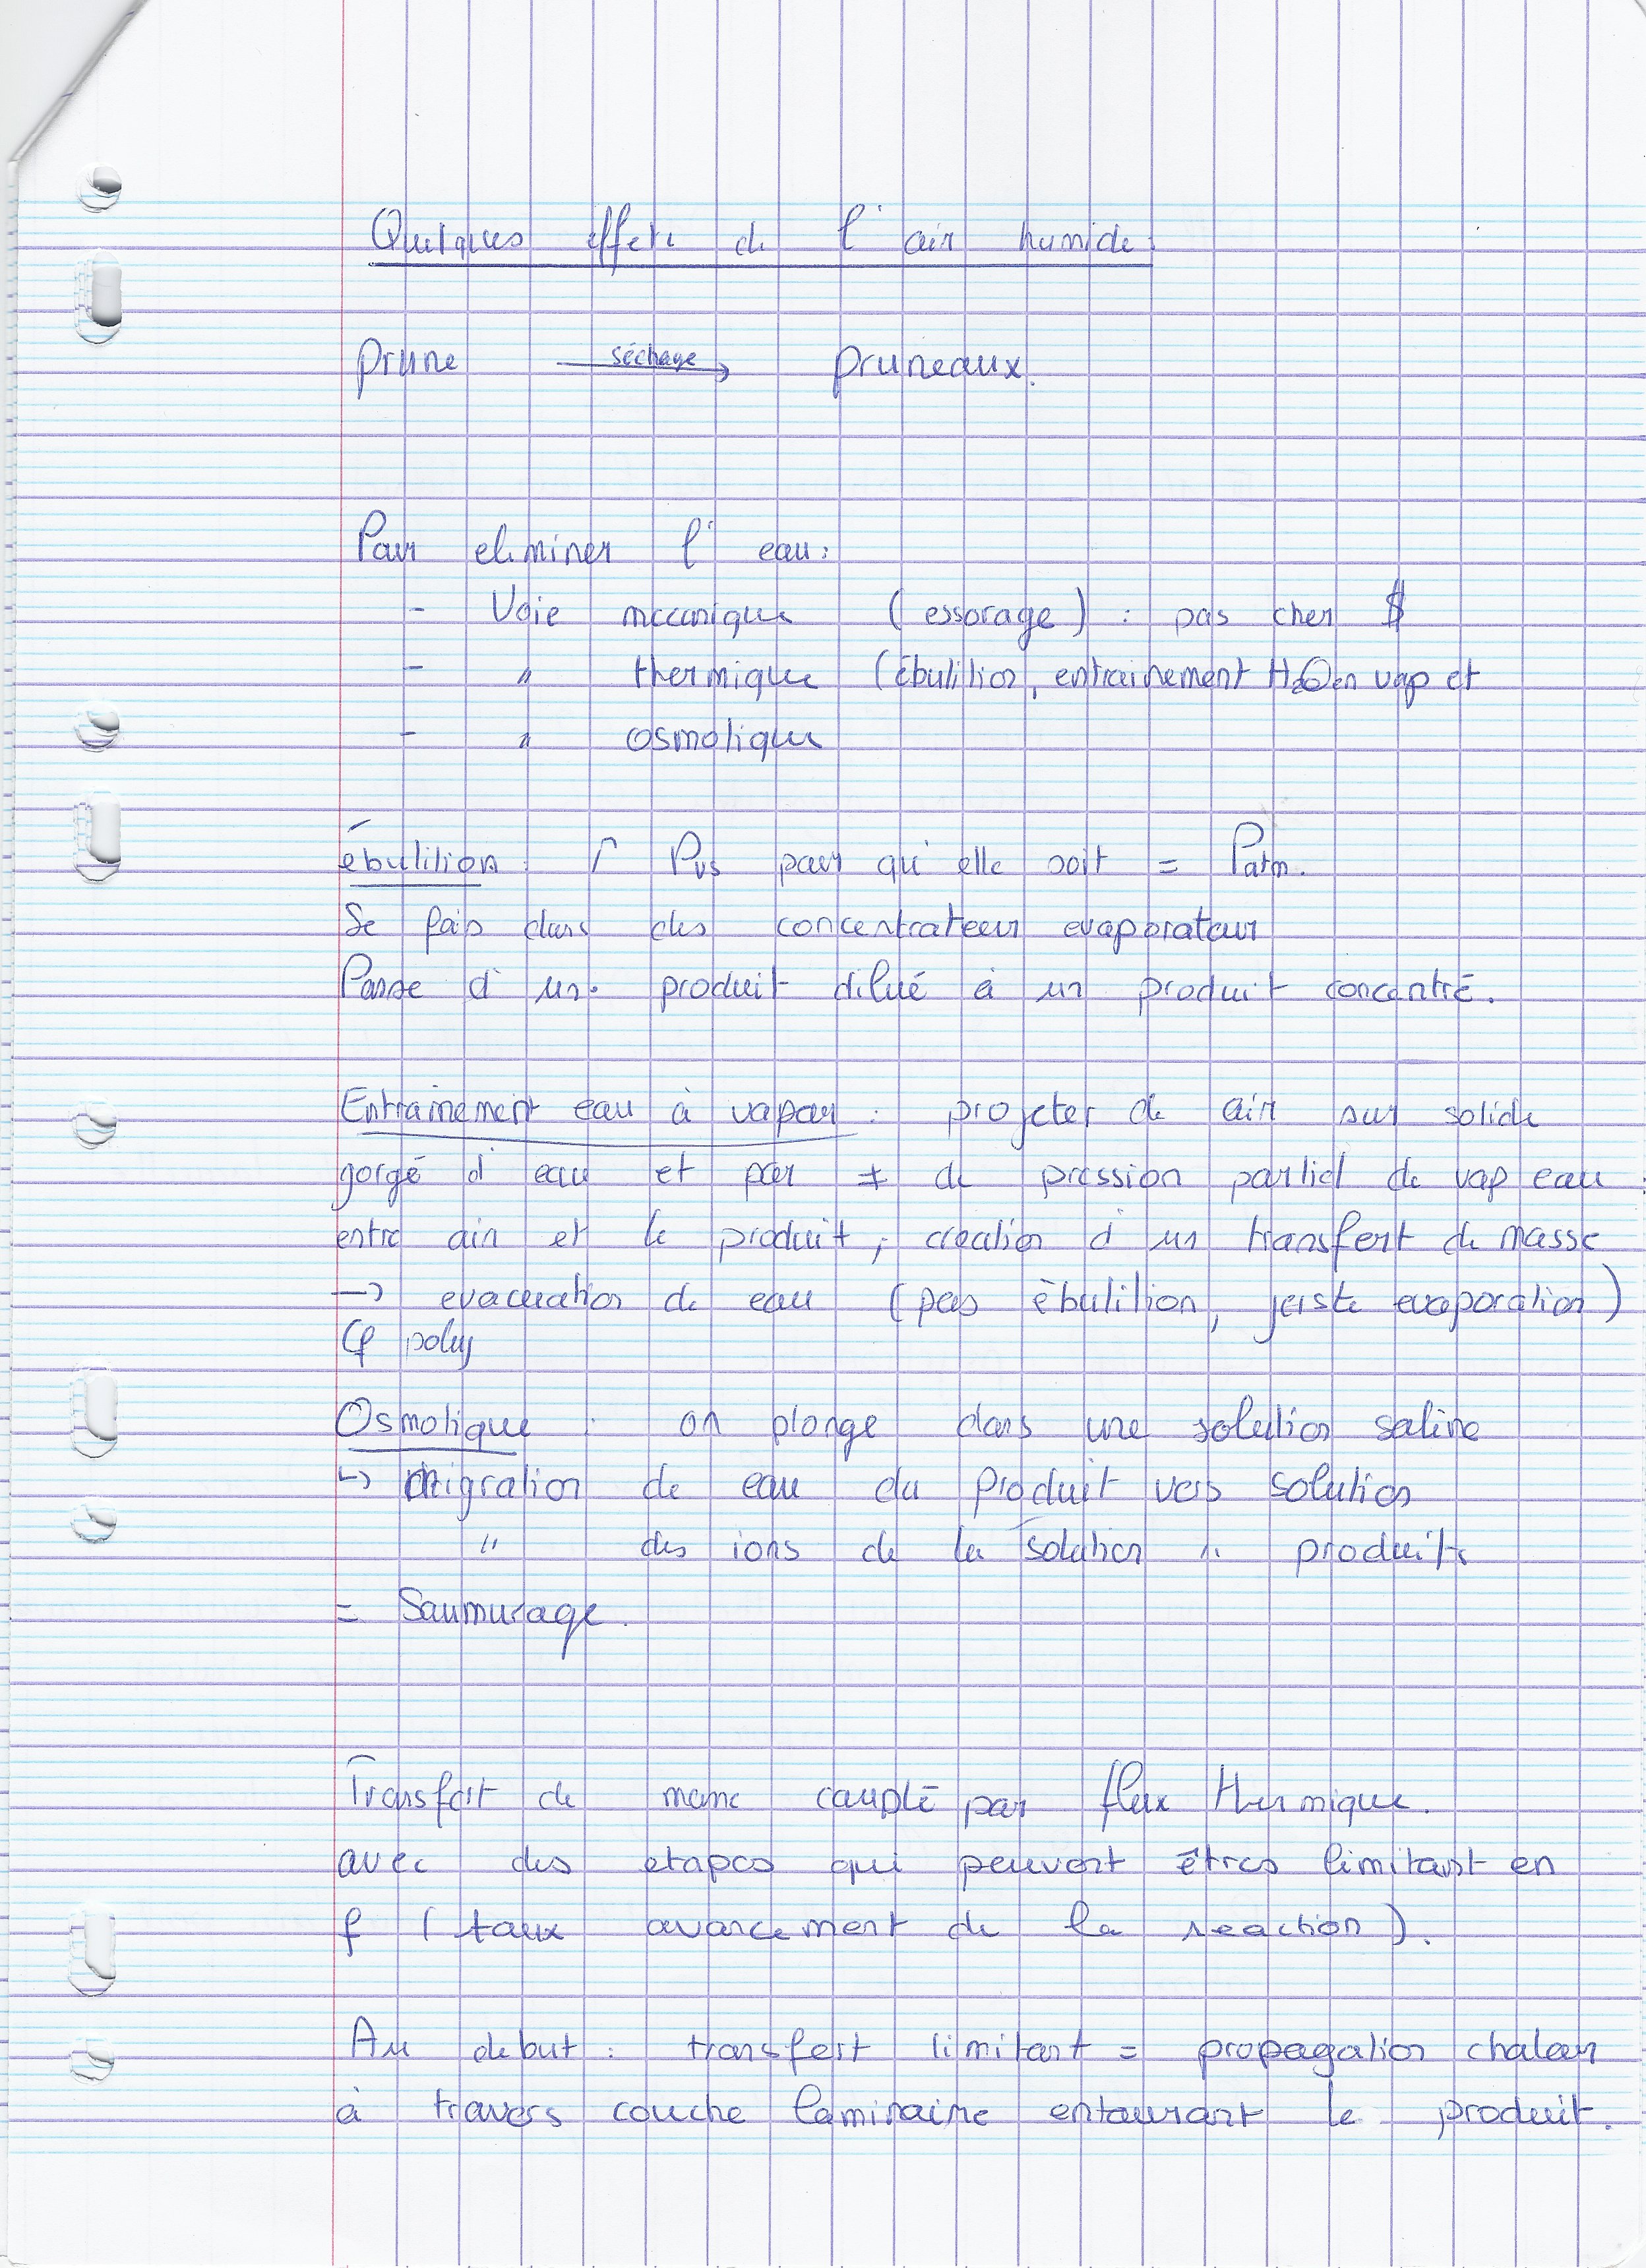 Quelques effets de l'air humide.
Prune séchage → pruneaux.
Pour eliminer l'eau :
- Voie mécanique (essorage) : pas cher $
- " thermique (ébulition, entrainement H2O en vap et
- " osmotique
ébulition : ↑ Pvs pour qu'elle soit = Patm.
Se fais dans des concentrateur evaporateur
Passe d'un produit dilué à un produit concentré.
Entrainement eau à vapeur : projeter de air sur solide
gorgé d'eau et par ≠ de pression partiel de vap eau
entre air et le produit, creation d'un transfert de masse
→ evacuation de eau (pas ébulition, juste evaporation)
Cf poly
Osmotique : on plonge dans une solution saline
↳ migration de eau du produit vers solution
" des ions de la solution " produits
= Saumurage.
Transfert de masse couplé par flux thermique.
avec des etapes qui peuvent êtres limitant en
f (taux avancement de la reaction).
Au debut : transfert limitant = propagation chaleur
à travers couche laminaire entourant le produit.